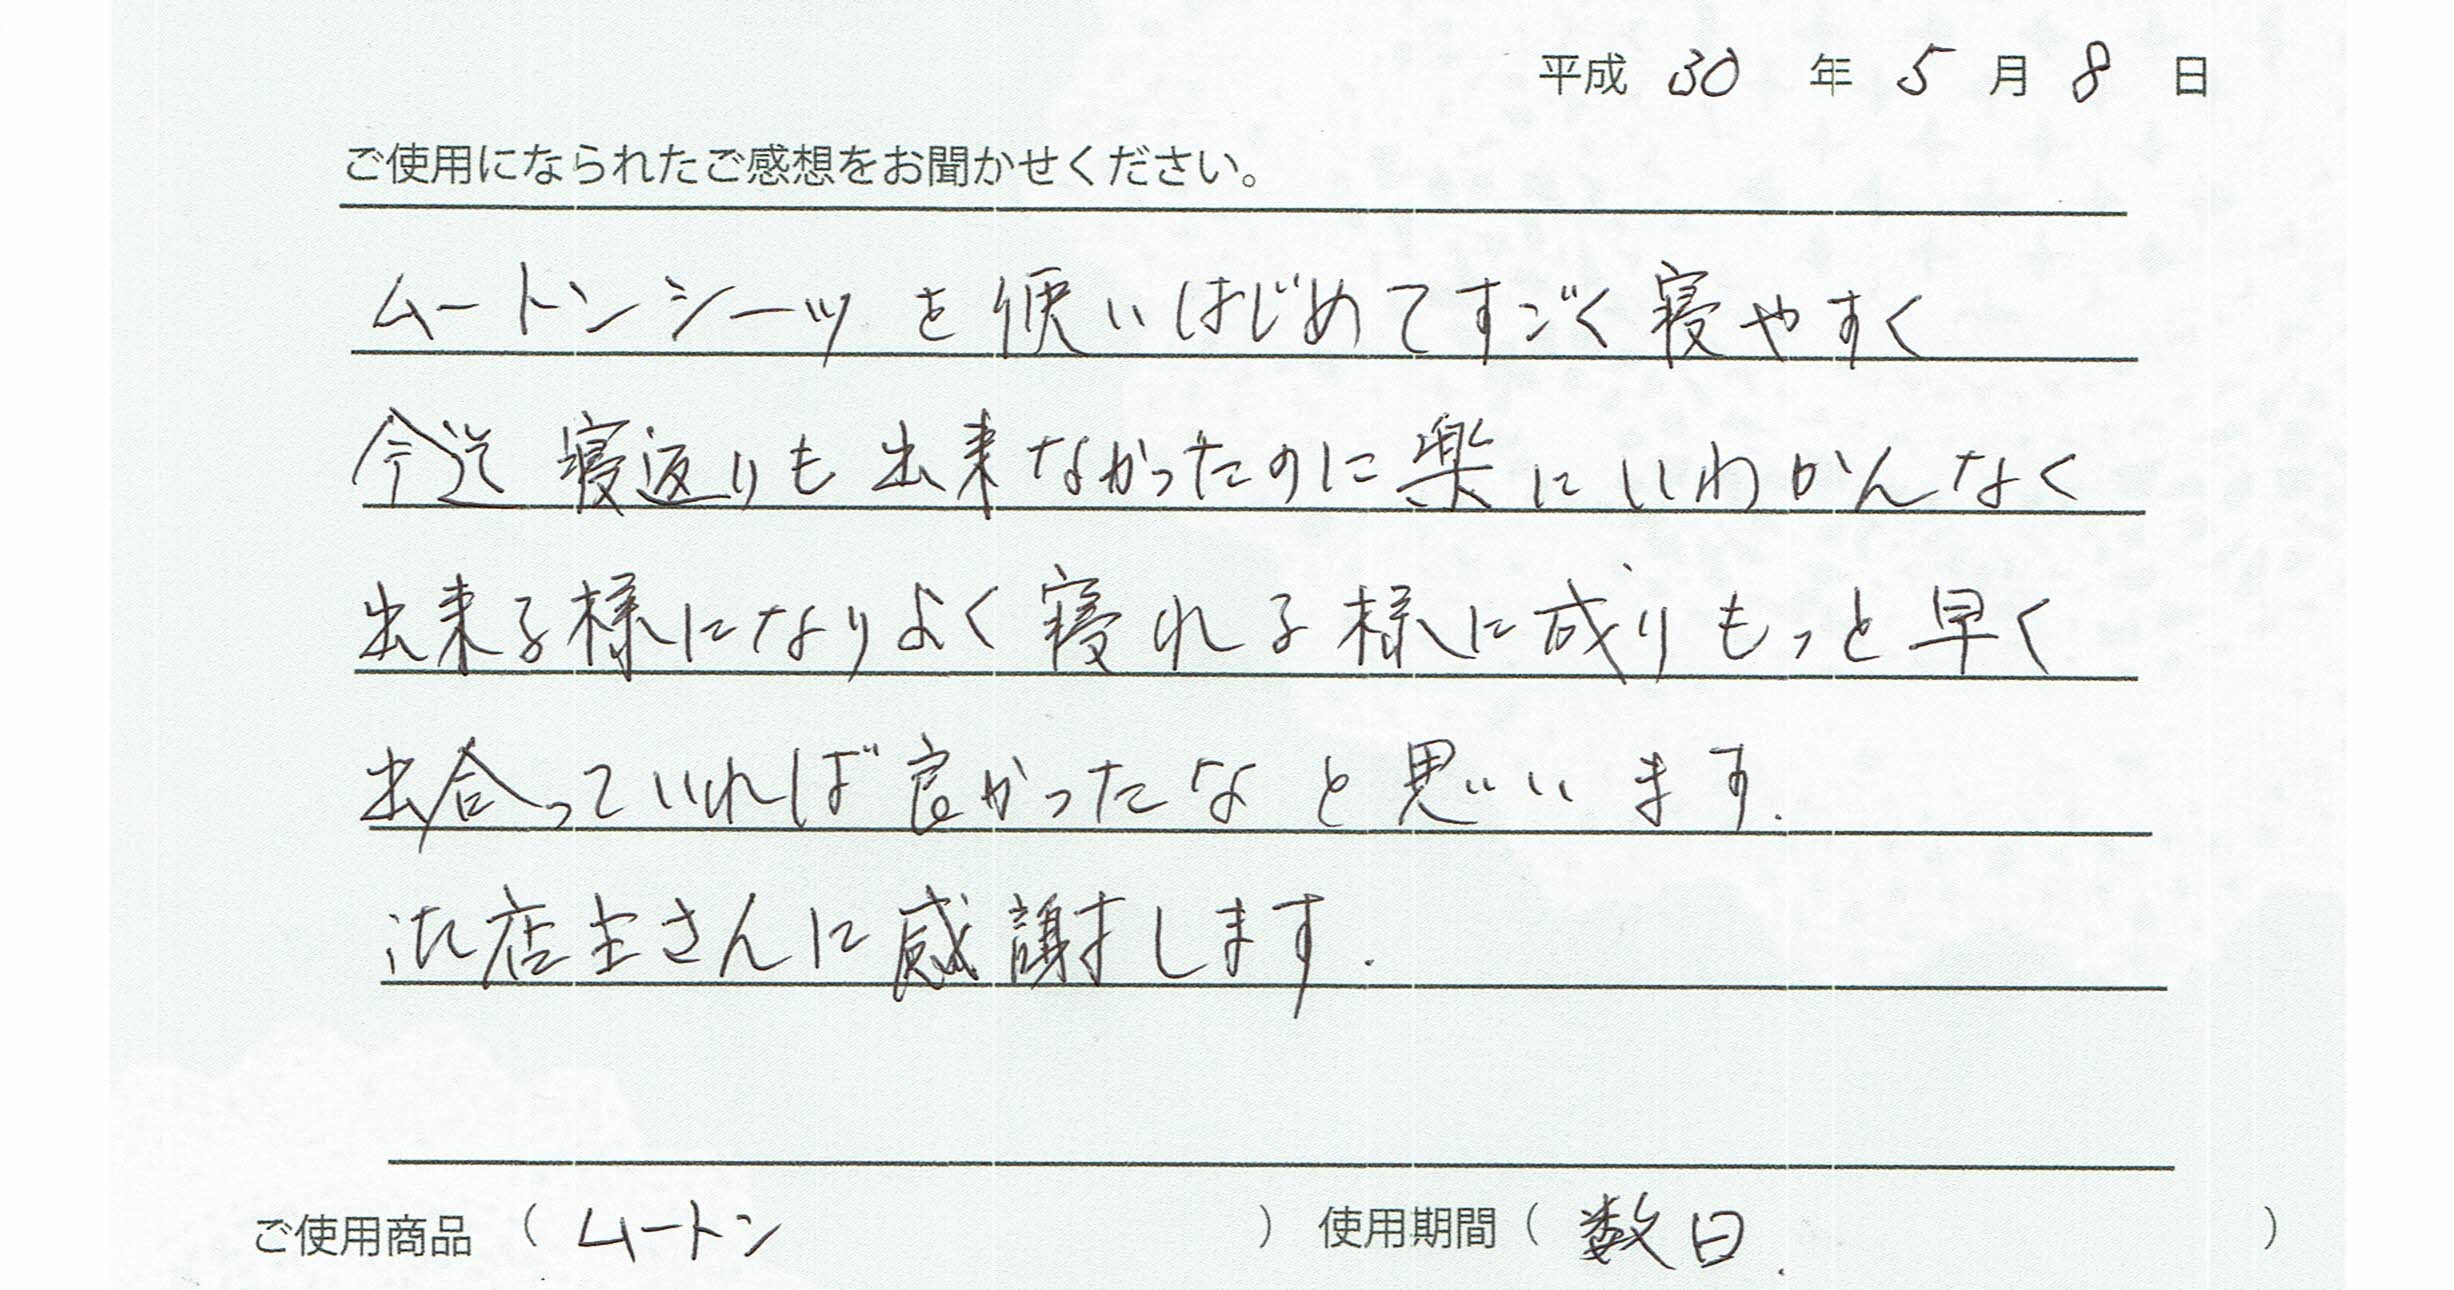 平成 30 年 5 月 8 日
ご使用になられたご感想をお聞かせください。
ムートンシーツを使いはじめてすごく寝やすく
今迄寝返りも出来なかったのに楽にいわかんなく
出来る様になりよく寝れる様に成りもっと早く
出合っていれば良かったなと思いいます.
店主さんに感謝します.
ご使用商品 ( ムートン ) 使用期間 ( 数日. )